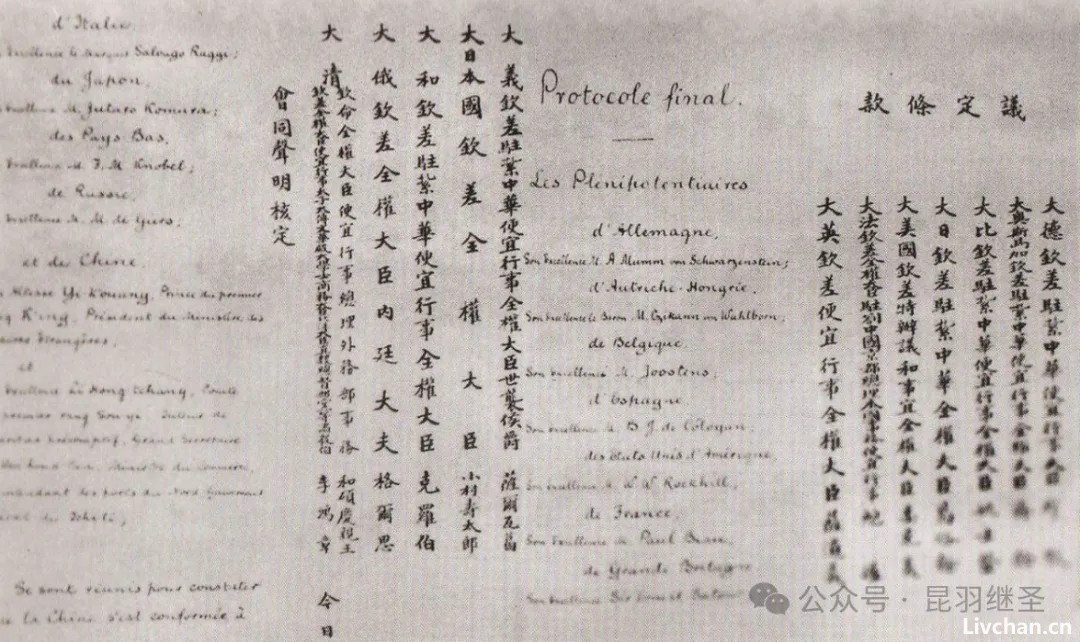 議定條款
大德欽差駐紮中華便宜行事
大奧斯馬加欽差駐紮中華便宜行事全權大臣
大比欽差駐紮中華便宜行事全權大臣
大日欽差駐紮中華全權大臣
大美國欽差特辦議和事宜全權大臣
大法欽差全權 駐劄中國京都總理本國事務便宜行事
大英欽差便宜行事全權大臣薩道義
大義欽差駐紮中華便宜行事全權大臣世襲侯爵薩爾瓦葛
大日本國欽差全權大臣小村寿太郎
大和欽差駐紮中華便宜行事全權大臣克羅伯
大俄欽差全權大臣內廷大夫格爾思
大清欽命全權大臣便宜行事總理外務部事務和碩慶親王
欽差全權大臣便宜行事太子太傅文華殿大學士商務大臣 李鴻章
會同聲明核定
今日
Protocole final.
Les Plénipotentiaires
d'Allemagne,
Son Excellence M. A. Mumm von Schwarzenstein;
d'Autriche-Hongrie,
Son Excellence le Baron M. Czikann von Wahlborn;
de Belgique,
Son Excellence M. Joostens;
d'Espagne,
Son Excellence M. B. J. de Cologan;
des États Unis d'Amérique,
Son Excellence M. W. W. Rockhill,
de France,
Son Excellence M. Paul Beau,
de Grande Bretagne
Son Excellence Sir Ernest Satow
d'Italie
Excellence le Marquis Salvago Raggi;
du Japon,
Excellence M. Jutaro Komura;
des Pays Bas,
Excellence M. F. M. Knobel;
de Russie,
Excellence M. M. de Giers,
et de Chine,
Altesse Yi-Kouang, Prince du premier
K'ing, Président du Ministère des
Étrangères,
et
Excellence Li Hong tchang, Comte
premier rang Sou-yi, Tuteur de
présomptif, Grand Secrétaire
Ministre du Commerce,
des ports du Nord
du Tchéli;
Se sont réunis pour constater
la Chine s'est conformée à
公众号·昆羽继圣
Livchan.cn